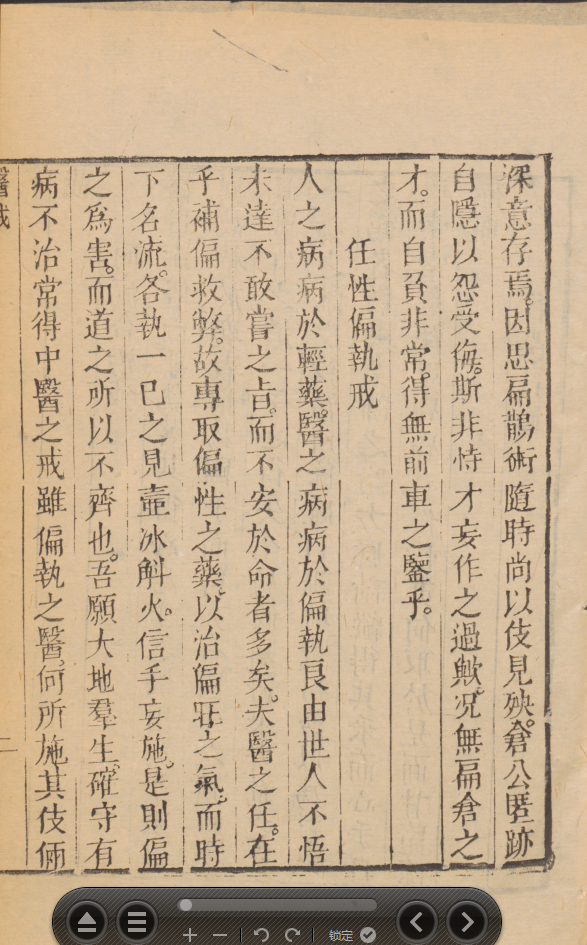 深意存焉。因思扁鵲術隨時尚以伎見殃。倉公匿跡
自隱以怨受侮。斯非恃才妄作之過歟。况無扁倉之
才。而自負非常。得無前車之鑒乎。
任性偏執戒
人之病病於輕藥。醫之病病於偏執良由世人不悟
未達不敢嘗之旨。而不安於命者多矣。夫醫之任。在
乎補偏救弊。故專取偏性之藥。以治偏旺之氣。而時
下名流。各執一己之見壺冰斛火。信手妄施。是則偏
之爲害。而道之所以不齊也。吾願大地羣生。確守有
病不治常得中醫之戒雖偏執之醫。何所施其伎倆
醫戒
一
锁定